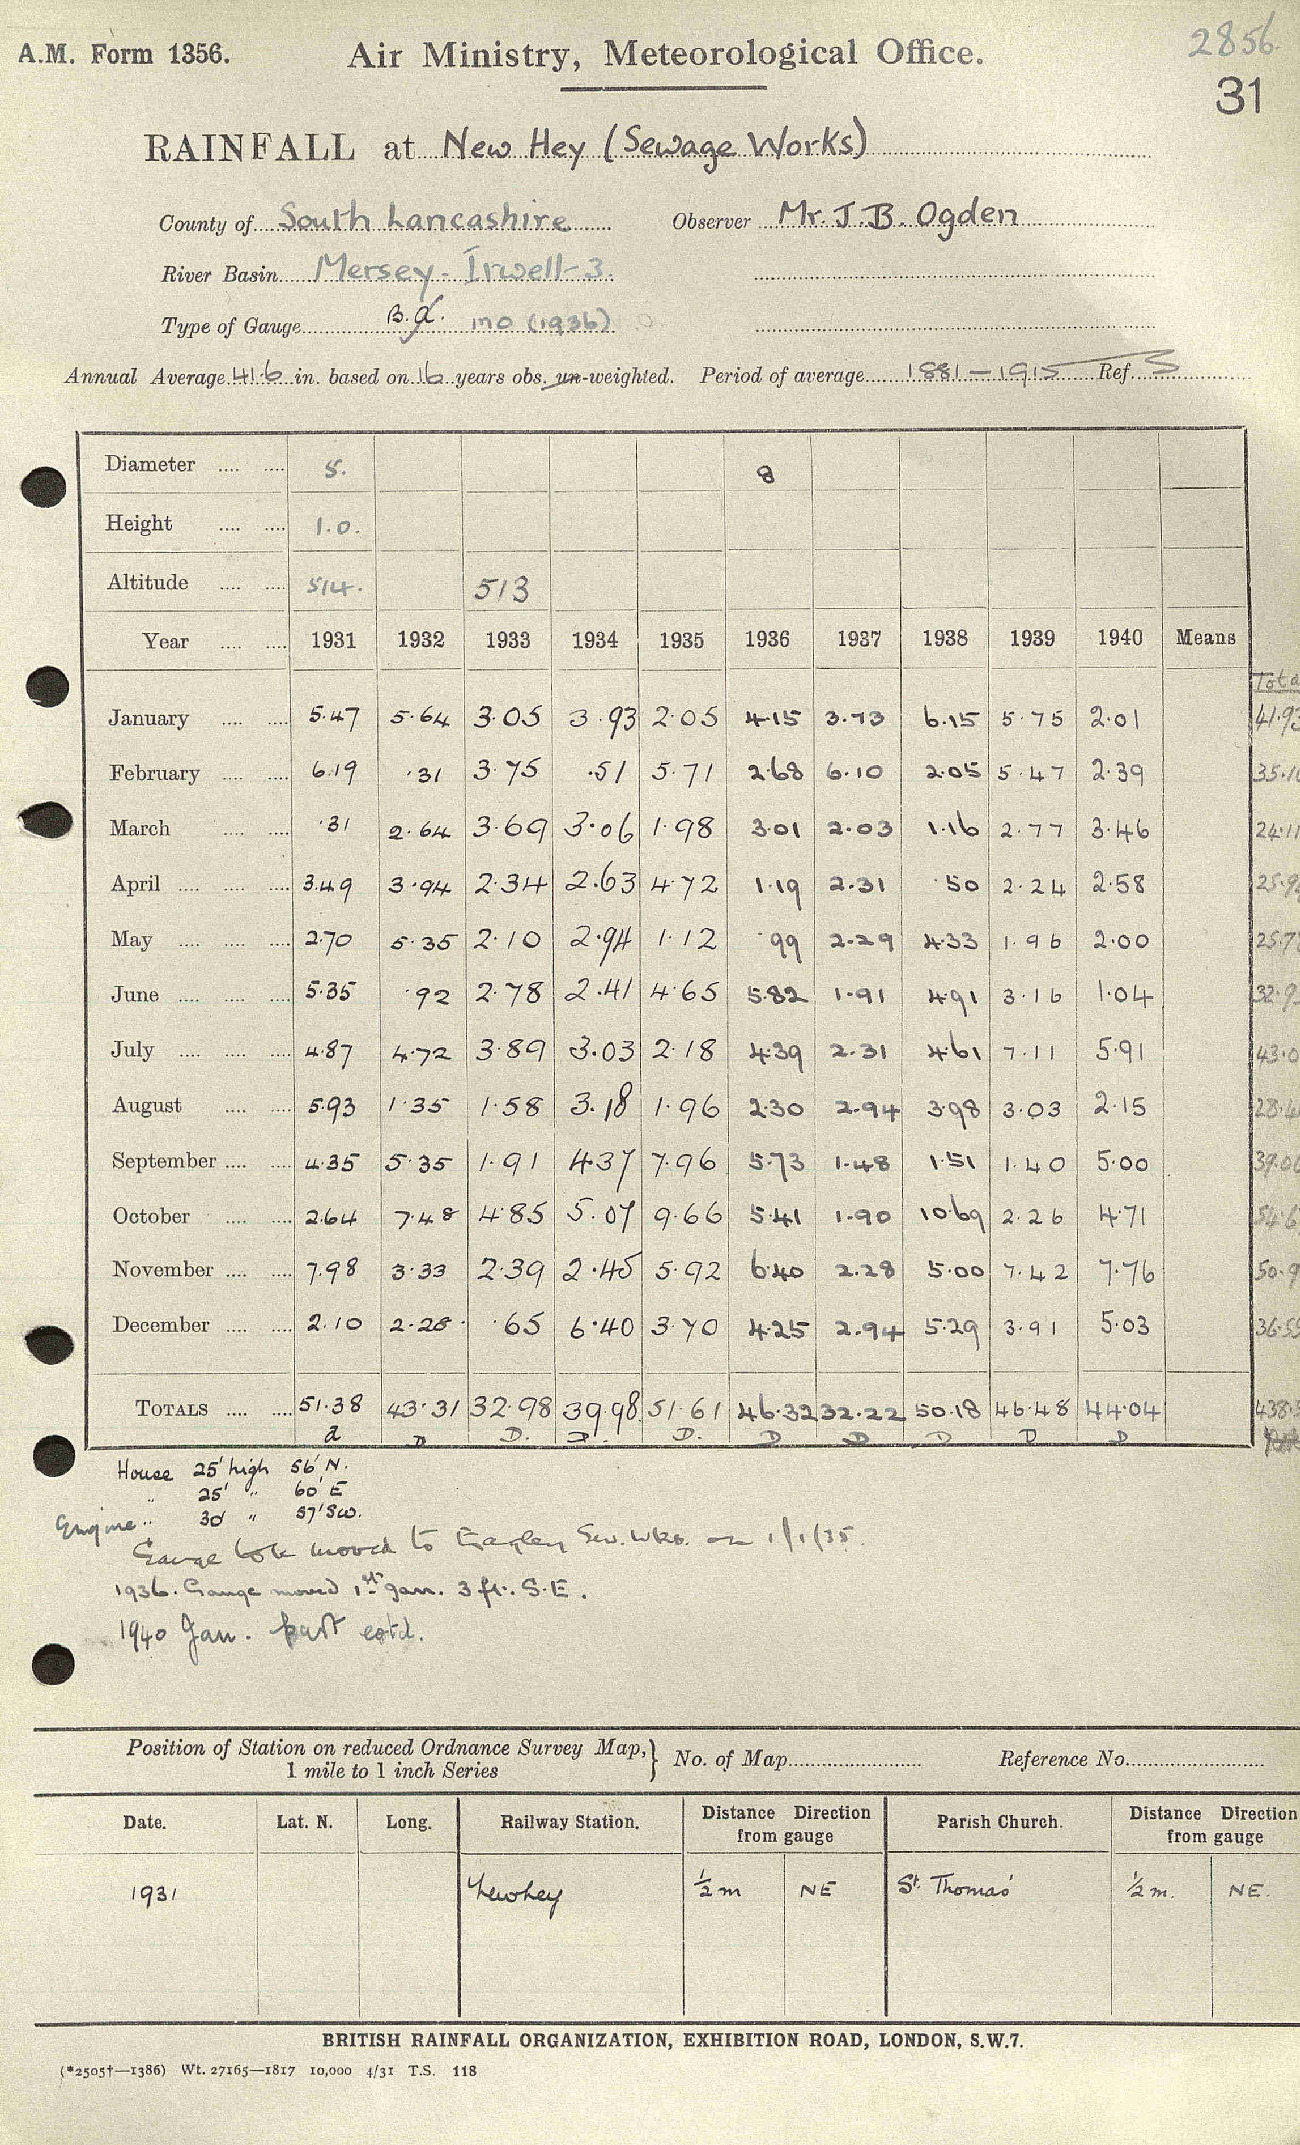 A.M. Form 1356. Air Ministry, Meteorological Office. 2856
31
RAINFALL at New Hey (Sewage Works)
County of South Lancashire Observer Mr. J. B. Ogden
River Basin Mersey-Irwell-3.
Type of Gauge B.G. mo (1936)
Annual Average 41.6 in. based on 16 years obs. un-weighted. Period of average 1881-1915 Ref. S
Diameter 5. 8
Height 1.0.
Altitude 514. 513
Year 1931 1932 1933 1934 1935 1936 1937 1938 1939 1940 Means
Tota
January 5.47 5.64 3.05 3.93 2.05 4.15 3.73 6.15 5.75 2.01 41.93
February 6.19 .31 3.75 .51 5.71 2.68 6.10 2.05 5.47 2.39 35.1
March .31 2.64 3.69 3.06 1.98 3.01 2.03 1.16 2.77 3.46 24.11
April 3.49 3.94 2.34 2.63 4.72 1.19 2.31 .50 2.24 2.58 25.9
May 2.70 5.35 2.10 2.94 1.12 .99 2.29 4.33 1.96 2.00 25.7
June 5.35 .92 2.78 2.41 4.65 5.82 1.91 4.91 3.16 1.04 32.9
July 4.87 4.72 3.89 3.03 2.18 4.39 2.31 4.61 7.11 5.91 43.0
August 5.93 1.35 1.58 3.18 1.96 2.30 2.94 3.98 3.03 2.15 28.4
September 4.35 5.35 1.91 4.37 7.96 5.73 1.48 1.51 1.40 5.00 39.06
October 2.64 7.48 4.85 5.07 9.66 5.41 1.90 10.69 2.26 4.71 54.6
November 7.98 3.33 2.39 2.45 5.92 6.40 2.28 5.00 7.42 7.76 50.9
December 2.10 2.28 .65 6.40 3.70 4.25 2.94 5.29 3.91 5.03 36.55
TOTALS 51.38 43.31 32.98 39.98 51.61 46.32 32.22 50.18 46.48 44.04 438.
a D D. D. D. D D D D D
House 25' high 56' N.
" 25' " 60' E
Engine " 30' " 57' SW.
Gauge moved to Sew. Wks. on 1/1/35.
1936. Gauge moved 1st Jan. 3 ft. S.E.
1940 Jan. part estd.
Position of Station on reduced Ordnance Survey Map, } No. of Map Reference No.
1 mile to 1 inch Series
Date. Lat. N. Long. Railway Station. Distance Direction from gauge Parish Church. Distance Direction from gauge
1931 Newhey ½ m NE St. Thomas' ½ m. NE.
BRITISH RAINFALL ORGANIZATION, EXHIBITION ROAD, LONDON, S.W.7.
(*2505†—1386) Wt. 27165—1817 10,000 4/31 T.S. 118